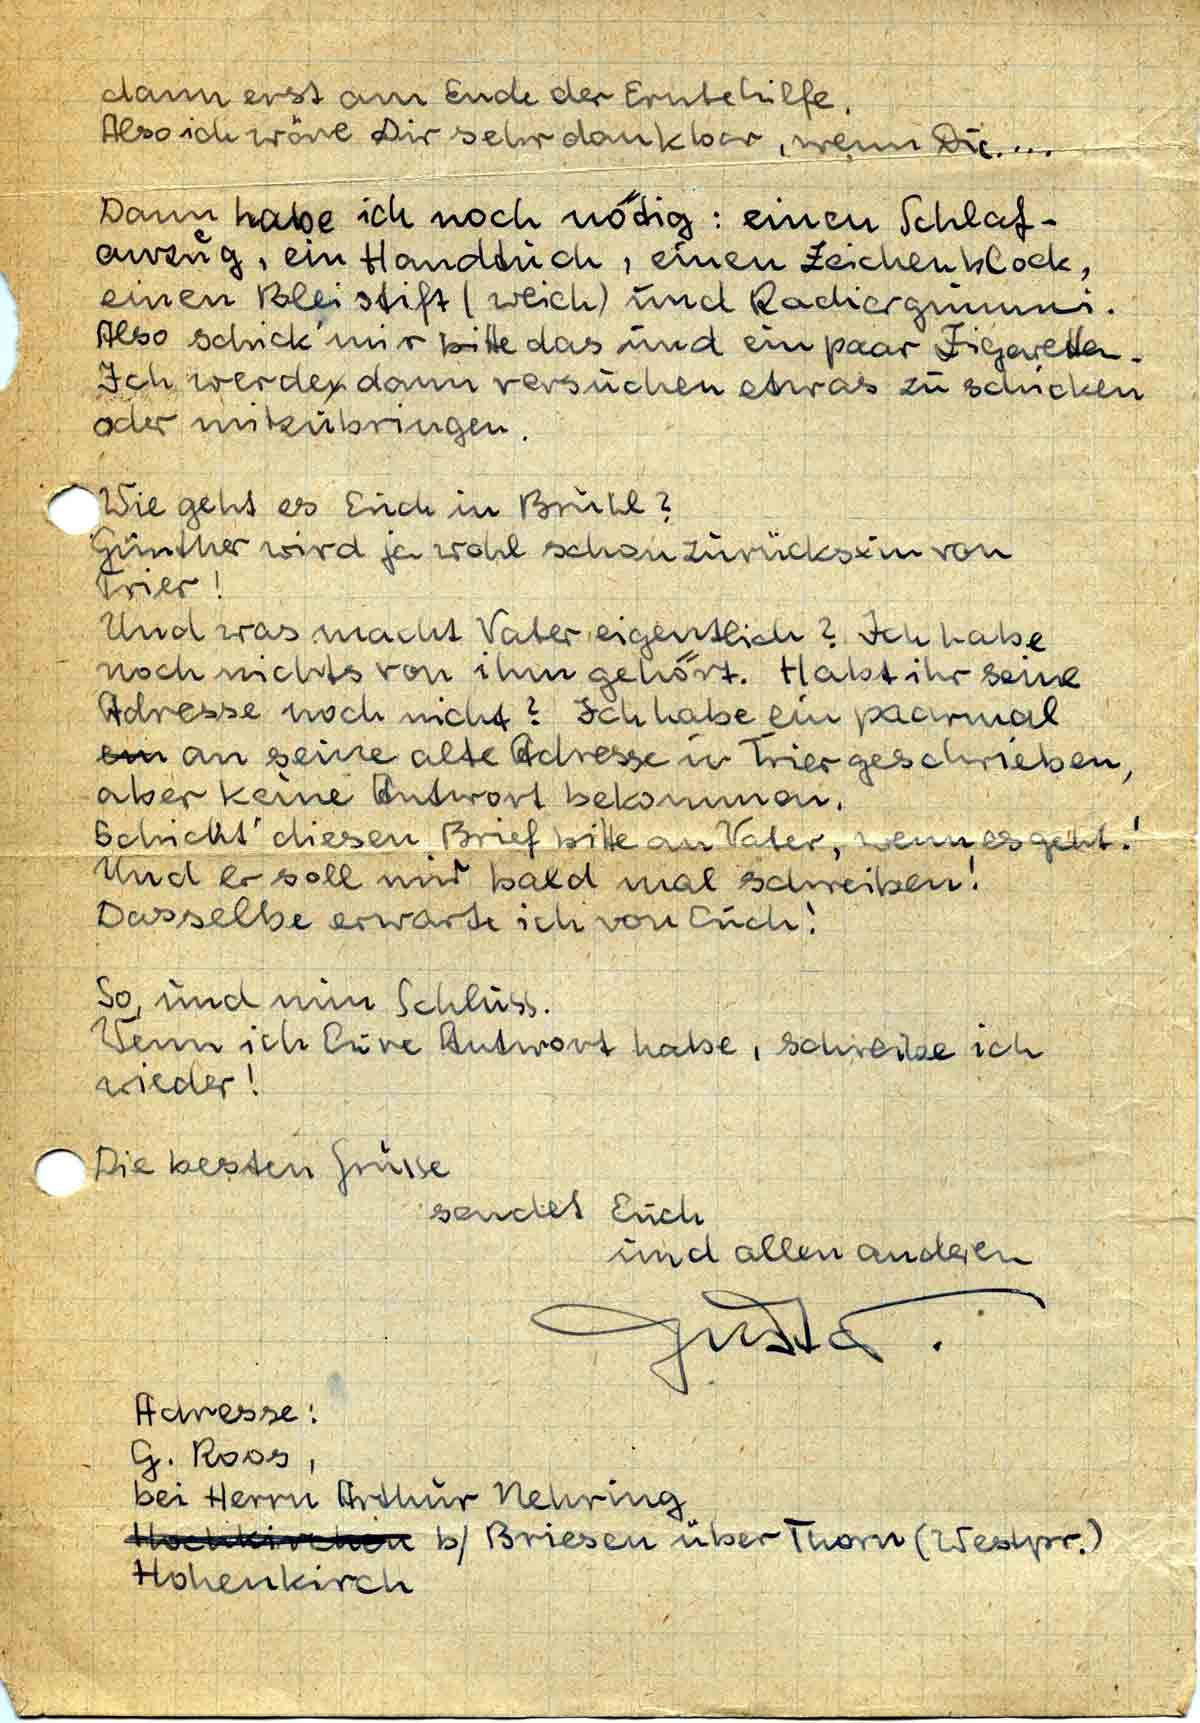 dann erst am Ende der Erntehilfe.
Also ich wäre Dir sehr dankbar, wenn Du....
Dann habe ich noch nötig: einen Schlaf-
anzug, ein Handtuch, einen Zeichenblock,
einen Bleistift (weich) und Radiergummi.
Also schick' mir bitte das und ein paar Zigaretten.
Ich werde dann versuchen etwas zu schicken
oder mitzubringen.
Wie geht es Euch in Brühl?
Günther wird ja wohl schon zurücksein von
Trier!
Und was macht Vater eigentlich? Ich habe
noch nichts von ihm gehört. Habt ihr seine
Adresse noch nicht? Ich habe ein paarmal
ein an seine alte Adresse in Trier geschrieben,
aber keine Antwort bekommen.
Schickt' diesen Brief bitte an Vater, wenn es geht!
Und er soll mir bald mal schreiben!
Dasselbe erwarte ich von Euch!
So, und nun Schluss.
Wenn ich Eure Antwort habe, schreibe ich
wieder!
Die besten Grüße
sendet Euch
und allen anderen
Gustav.
Adresse:
G. Roos,
bei Herrn Arthur Nehring
Hochkirchen b/ Briesen über Thorn (Westpr.)
Hohenkirch